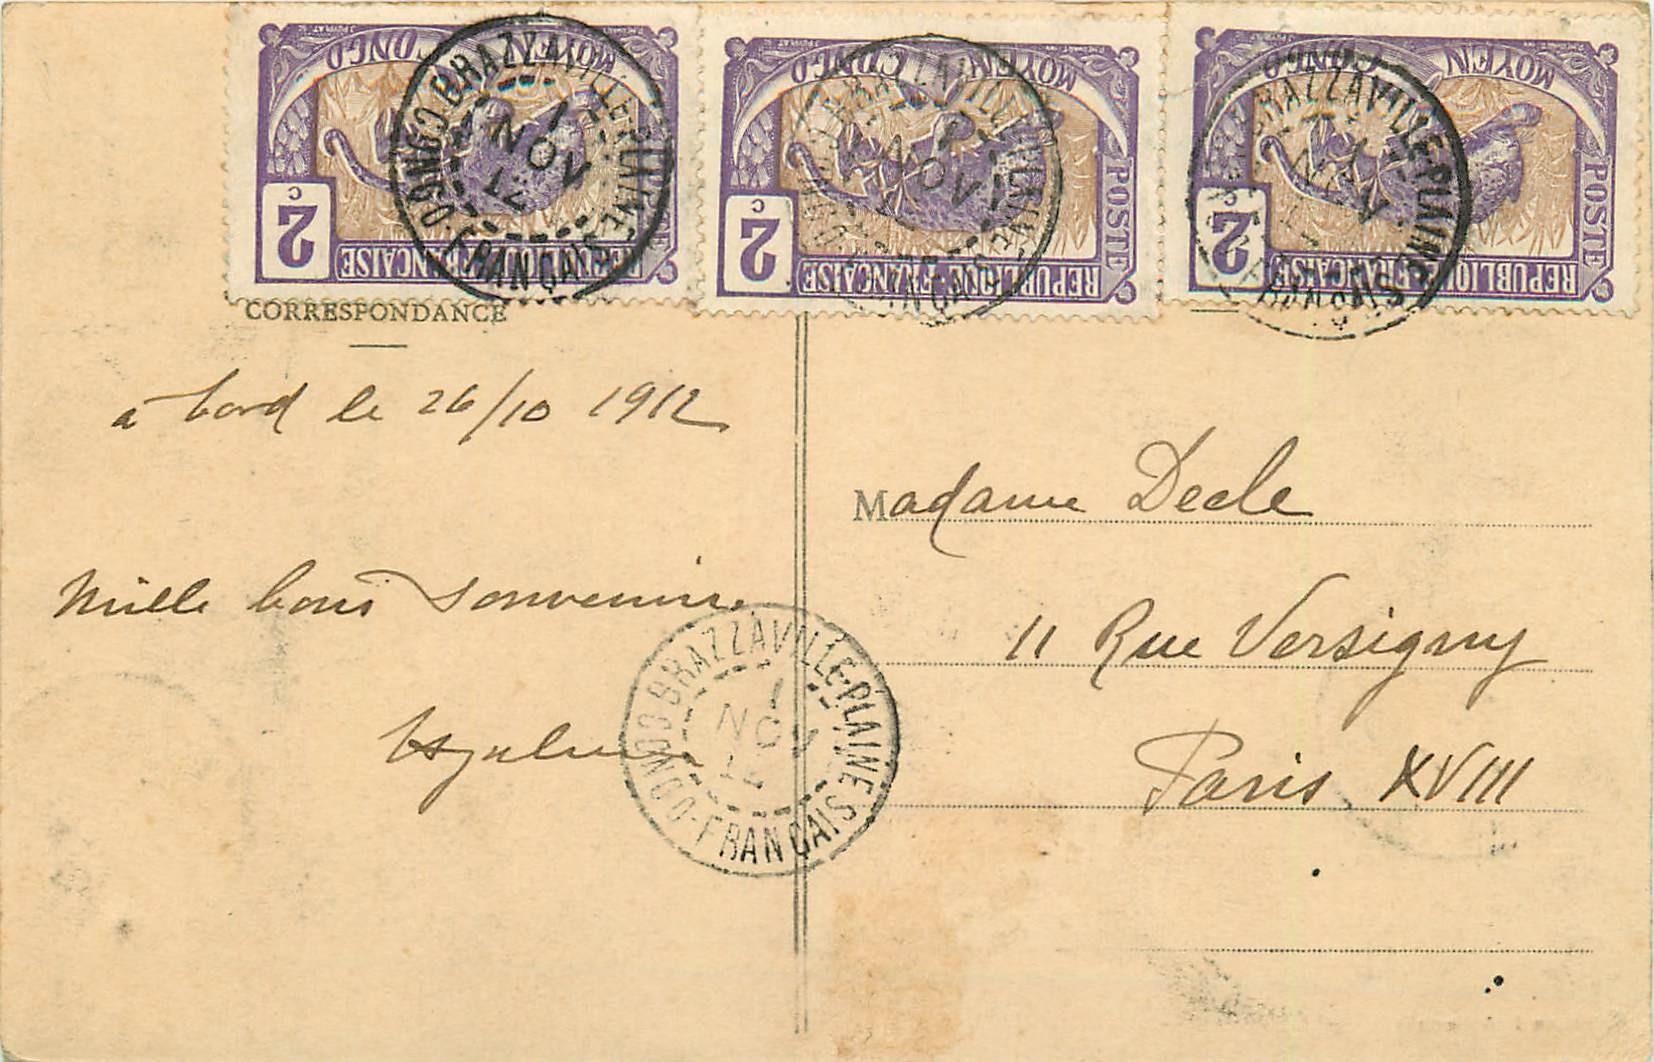 MOYEN CONGO
POSTE
2 c
REPUBLIQUE FRANÇAISE
MOYEN CONGO
POSTE
2 c
REPUBLIQUE FRANÇAISE
MOYEN CONGO
POSTE
2 c
REPUBLIQUE FRANÇAISE
BRAZZAVILLE-PLAINE
1 NOV 12
CONGO-FRANÇAIS
BRAZZAVILLE-PLAINE
NOV
CONGO-FRANÇAIS
BRAZZAVILLE-PLAINE
FRANÇAIS
CORRESPONDANCE
à bord le 26/10 1912
Mille bons souvenirs
BRAZZAVILLE-PLAINE
1 NOV 12
CONGO-FRANÇAIS
Madame Decle
11 Rue Versigny
Paris XVIII